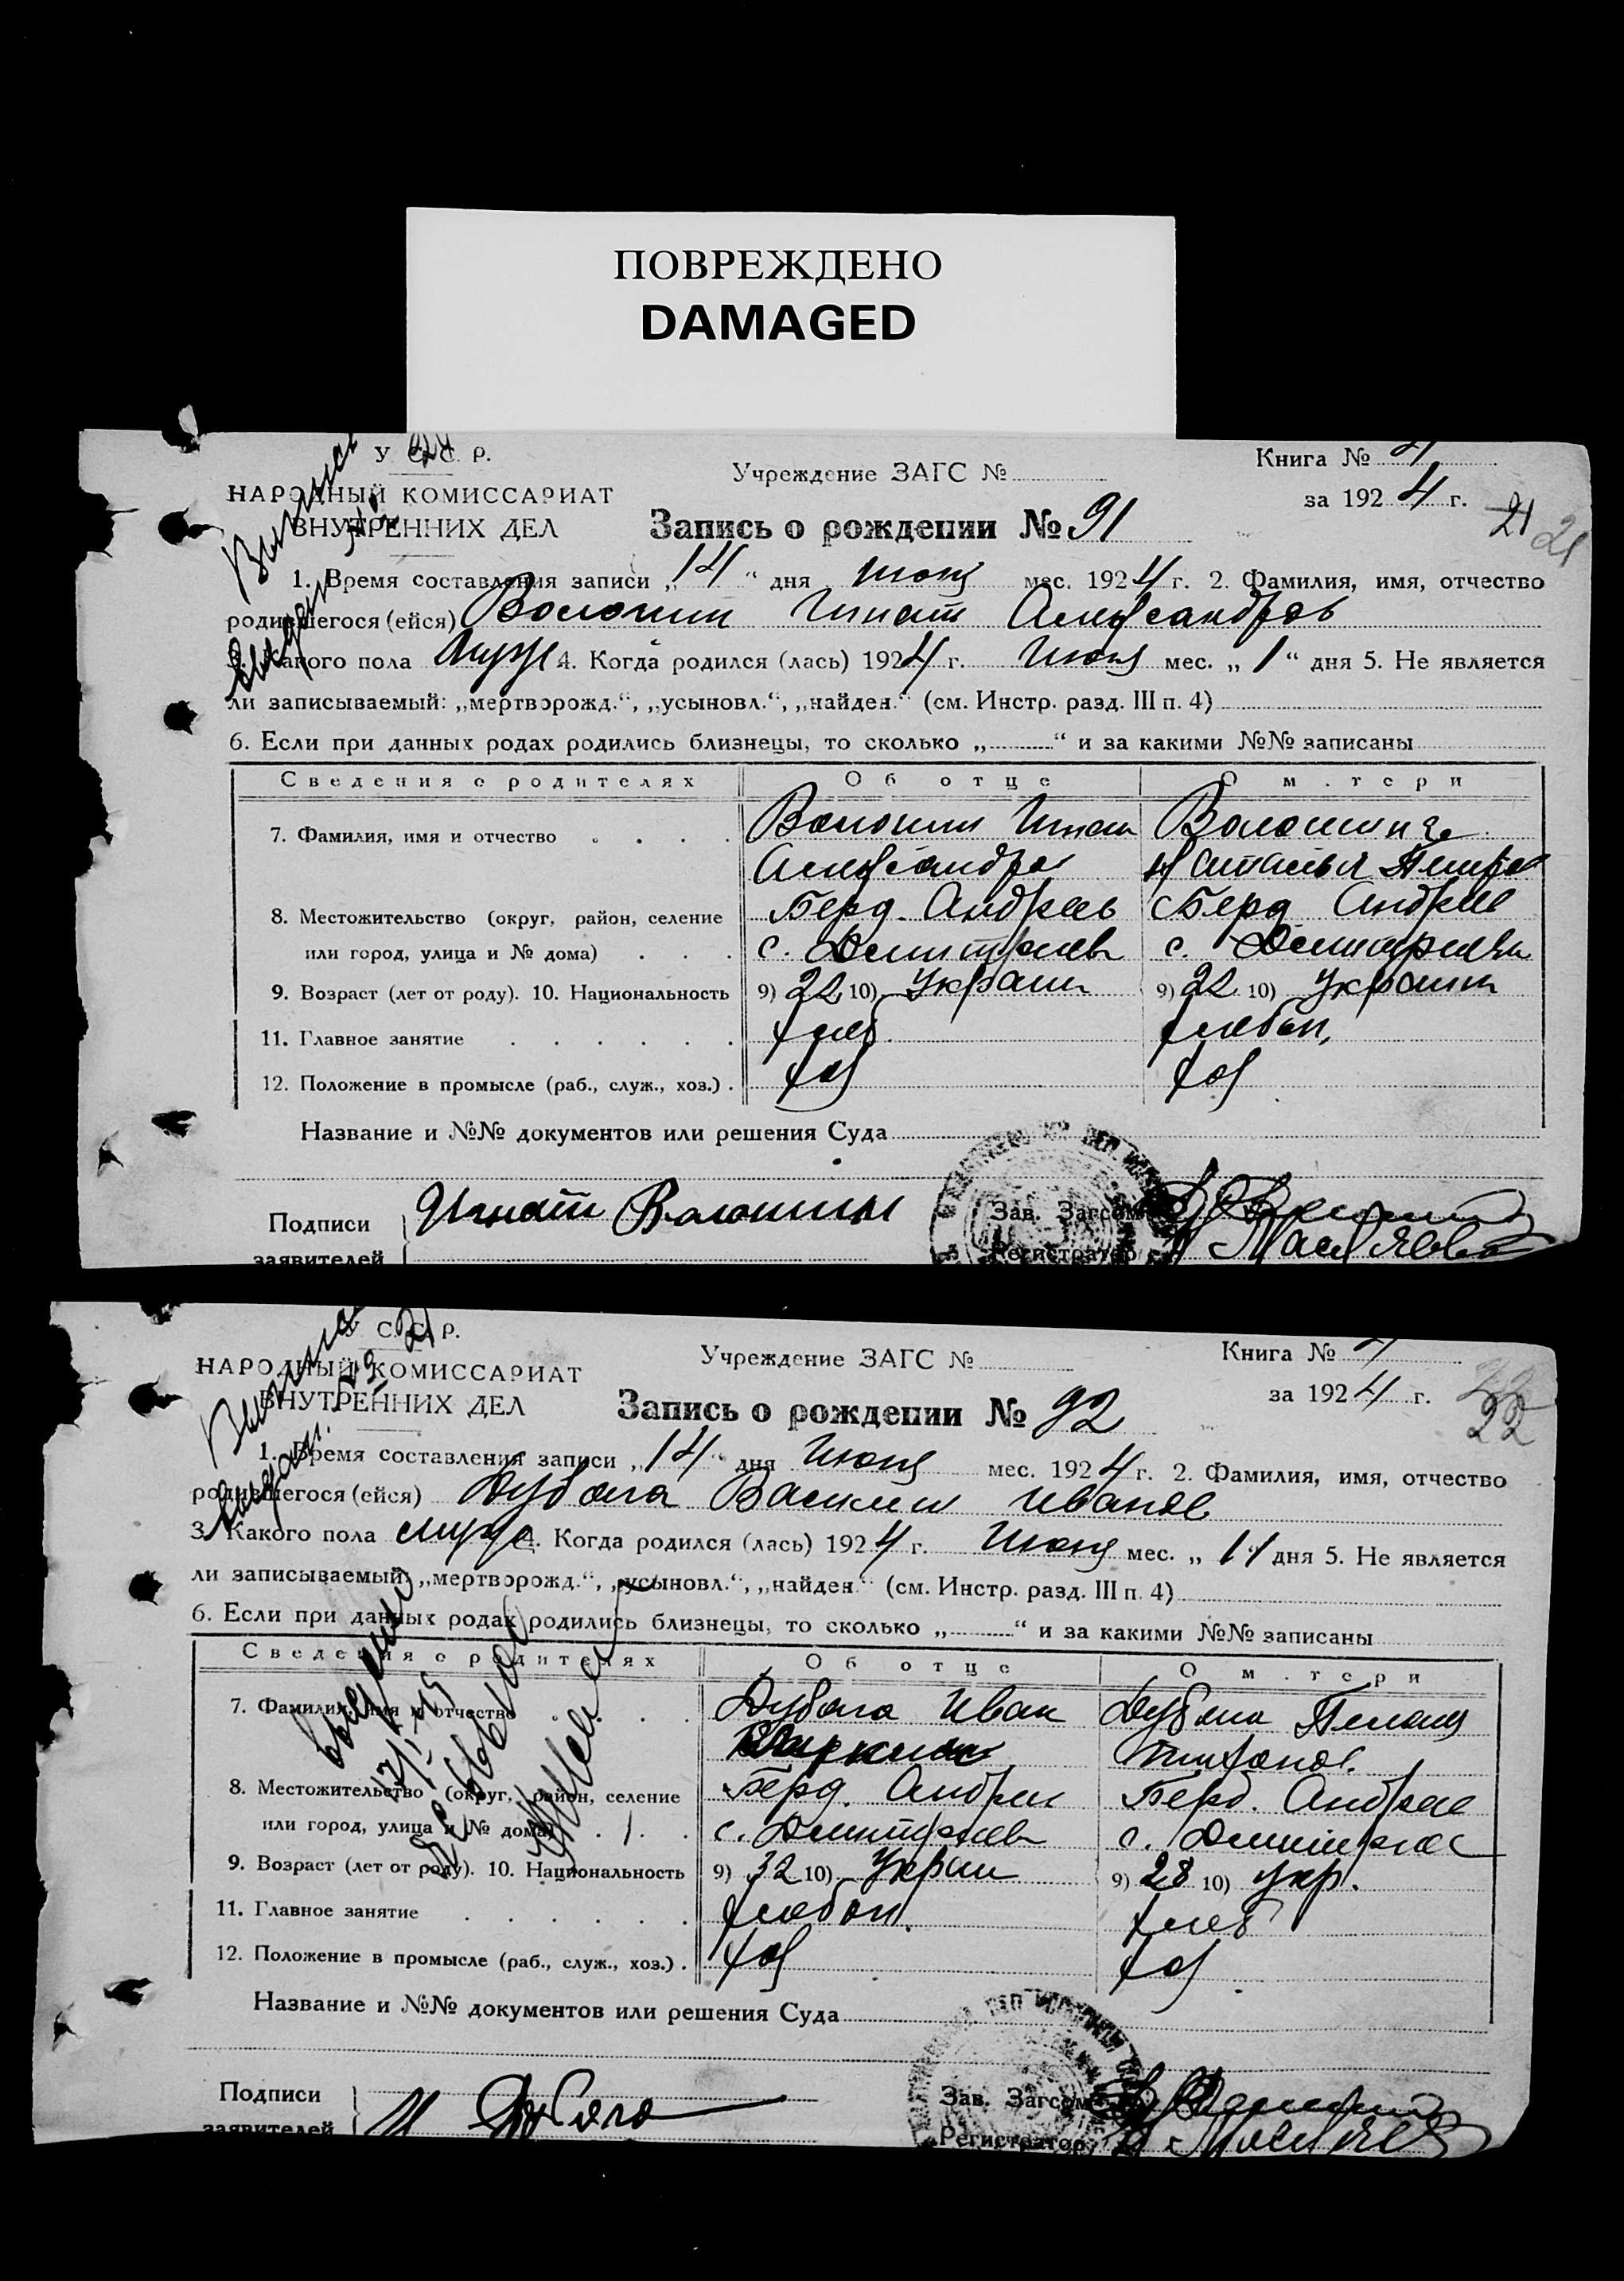 ПОВРЕЖДЕНО
DAMAGED
У С. С. Р.
НАРОДНЫЙ КОМИССАРИАТ
ВНУТРЕННИХ ДЕЛ
Учреждение ЗАГС №
Книга № 4
за 1924 г.
21 21
Запись о рождении № 91
1. Время составления записи „14“ дня июня мес. 1924 г. 2. Фамилия, имя, отчество
родившегося (ейся) Волошин Игнат Александров
3. Какого пола муж 4. Когда родился (лась) 1924 г. июня мес. „1“ дня 5. Не является
ли записываемый: „мертворожд.“, „усыновл.“, „найден.“ (см. Инстр. разд. III п. 4)
6. Если при данных родах родились близнецы, то сколько „ “ и за какими №№ записаны
Сведения о родителях Об отце О матери
7. Фамилия, имя и отчество Волошин Игнат Волошина
Александро Наталья Петро
8. Местожительство (округ, район, селение Берд. Андреев Берд Андреев
или город, улица и № дома) с. Дмитриев с. Дмитриевк
9. Возраст (лет от роду). 10. Национальность 9) 22 10) Украин 9) 22 10) Украин
11. Главное занятие хлеб. хлебоп.
12. Положение в промысле (раб., служ., хоз.) хоз хоз
Название и №№ документов или решения Суда
Подписи
заявителей
Игнат Волошин
Зав. Загсом
Регистратор
С. С. Р.
НАРОДНЫЙ КОМИССАРИАТ
ВНУТРЕННИХ ДЕЛ
Учреждение ЗАГС №
Книга № 4
за 1924 г.
22
Запись о рождении № 92
1. Время составления записи „14“ дня июня мес. 1924 г. 2. Фамилия, имя, отчество
родившегося (ейся) Дубяга Василий Иванов
3. Какого пола муж 4. Когда родился (лась) 1924 г. июня мес. „11“ дня 5. Не является
ли записываемый: „мертворожд.“, „усыновл.“, „найден.“ (см. Инстр. разд. III п. 4)
6. Если при данных родах родились близнецы, то сколько „ “ и за какими №№ записаны
Сведения о родителях Об отце О матери
7. Фамилия, имя и отчество Дубяга Иван Дубяга Пелагея
Тихонов.
8. Местожительство (округ, район, селение Берд. Андреев Берд. Андреев
или город, улица и № дома) с. Дмитриев с. Дмитриев
9. Возраст (лет от роду). 10. Национальность 9) 32 10) Украин 9) 28 10) Укр.
11. Главное занятие хлебоп. хлеб
12. Положение в промысле (раб., служ., хоз.) хоз хоз
Название и №№ документов или решения Суда
Подписи
заявителей
И Дубяга
Зав. Загсом
Регистратор